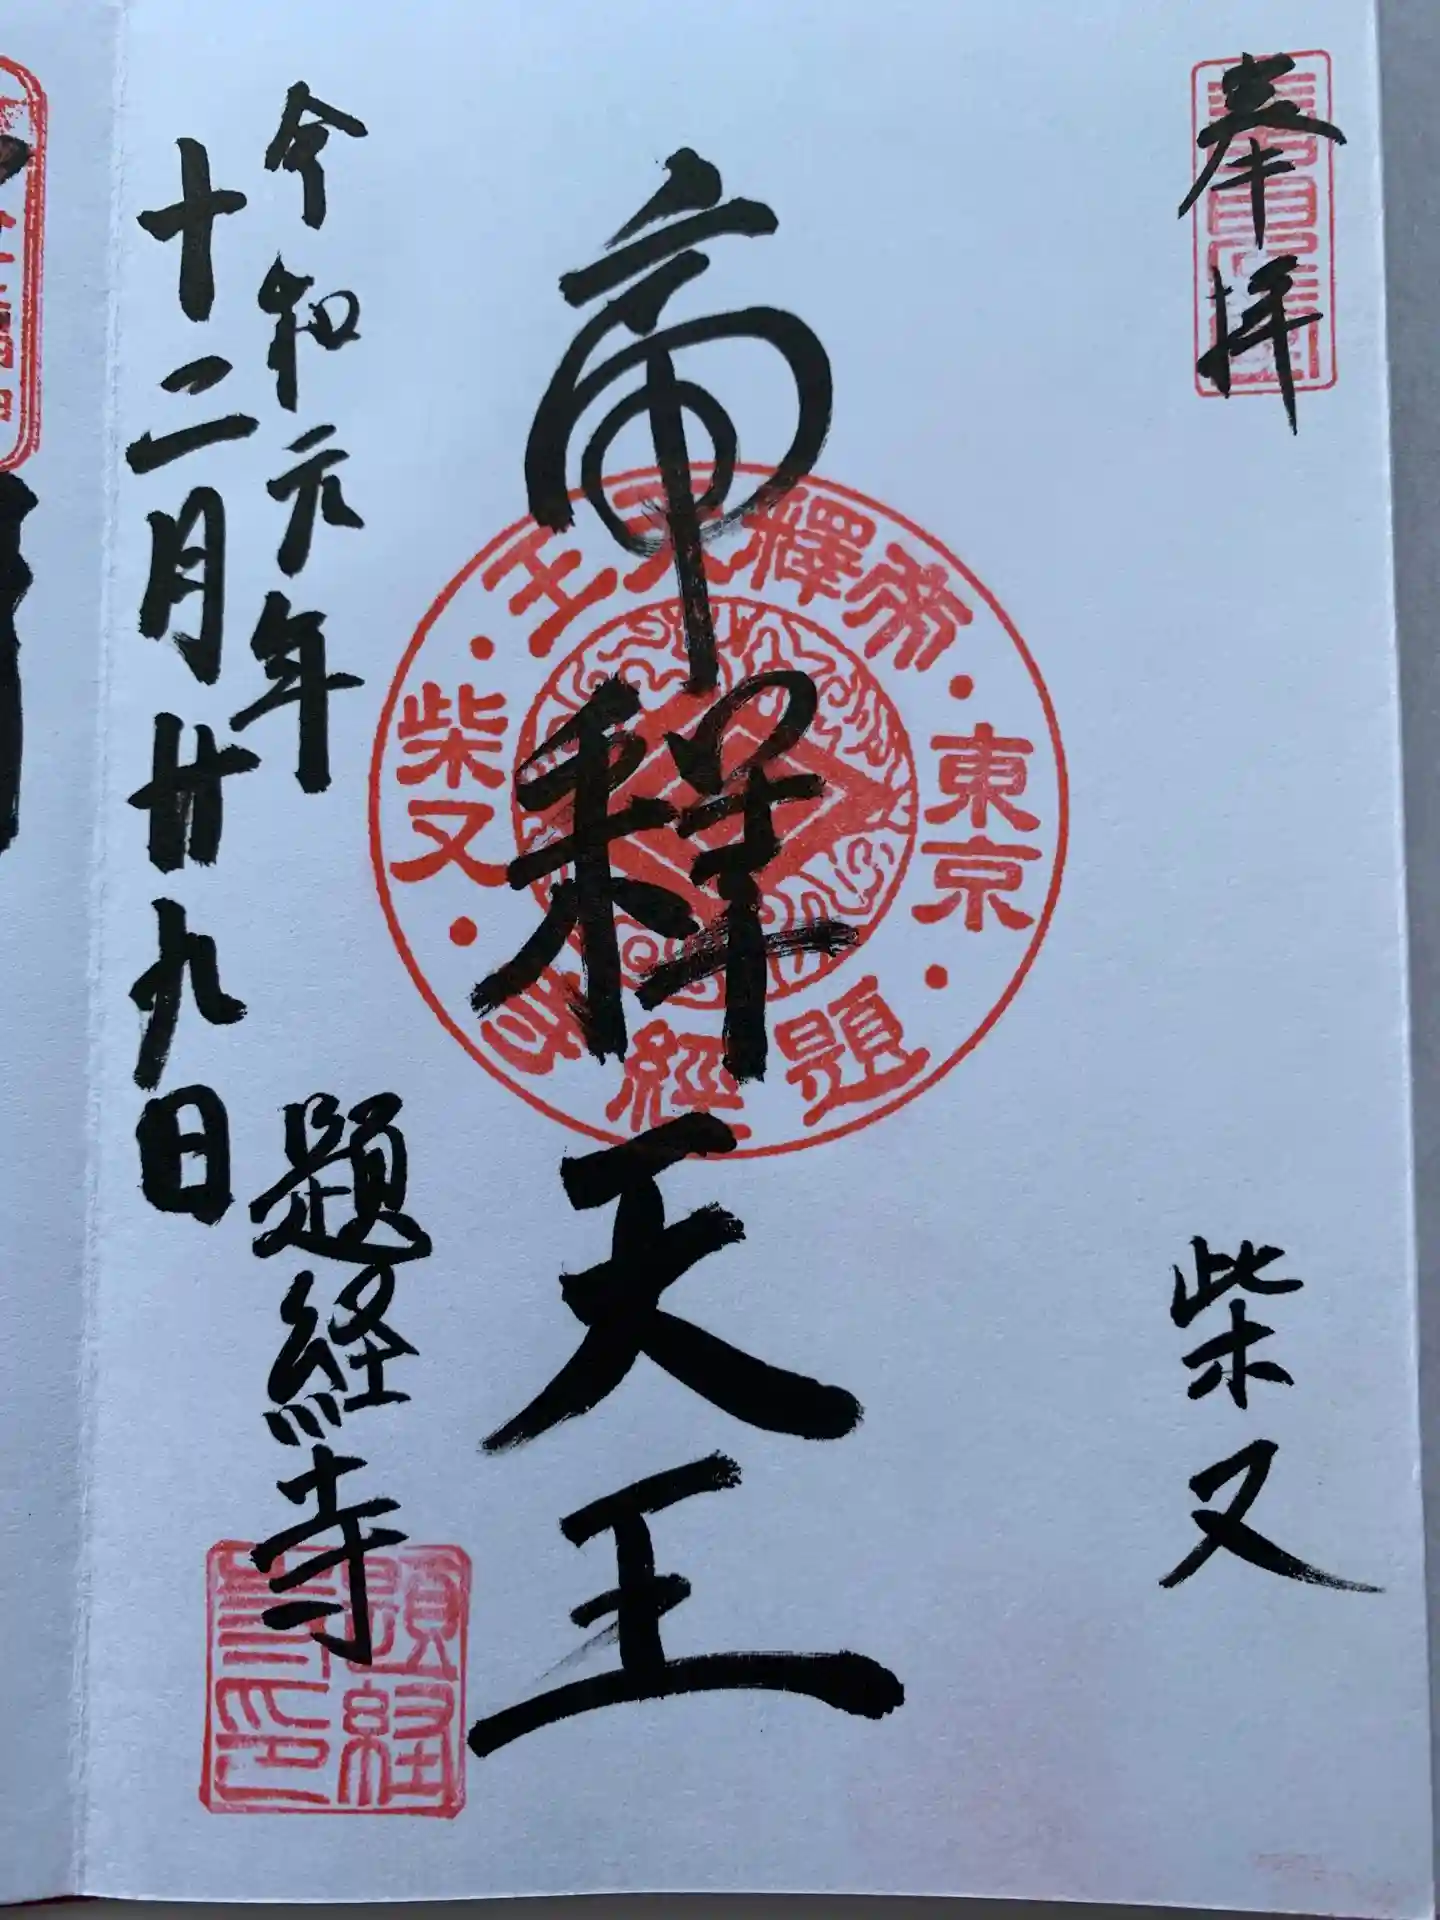 奉拝
柴又
帝釈天王
東京・帝釋天王・柴又・題經寺
令和元年
十二月廿九日
題経寺
題経寺印